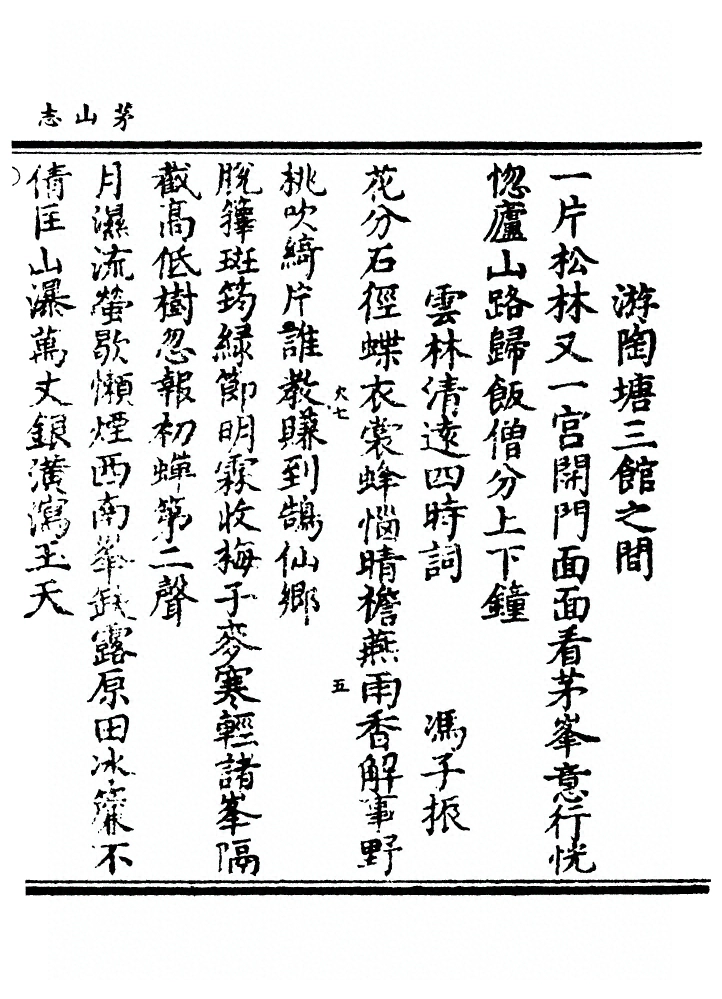 茅山志
游陶塘三館之間
一片松林又一宫開門面面看茅峯意行恍
惚廬山路歸飯僧分上下鐘
雲林清遠四時詞 馮子振
花分石徑蝶衣裳蜂惱晴檐燕雨香解事野
六七
五
桃吹綺片誰教賺到鵠仙鄉
脫籜斑筠緑節明霖收梅子麥寒輕諸峯隔
截高低樹忽報初蟬第二聲
月濕流螢歇懶煙西南峯鈌露原田冰簾不
倩匡山瀑萬丈銀潢瀉玉天